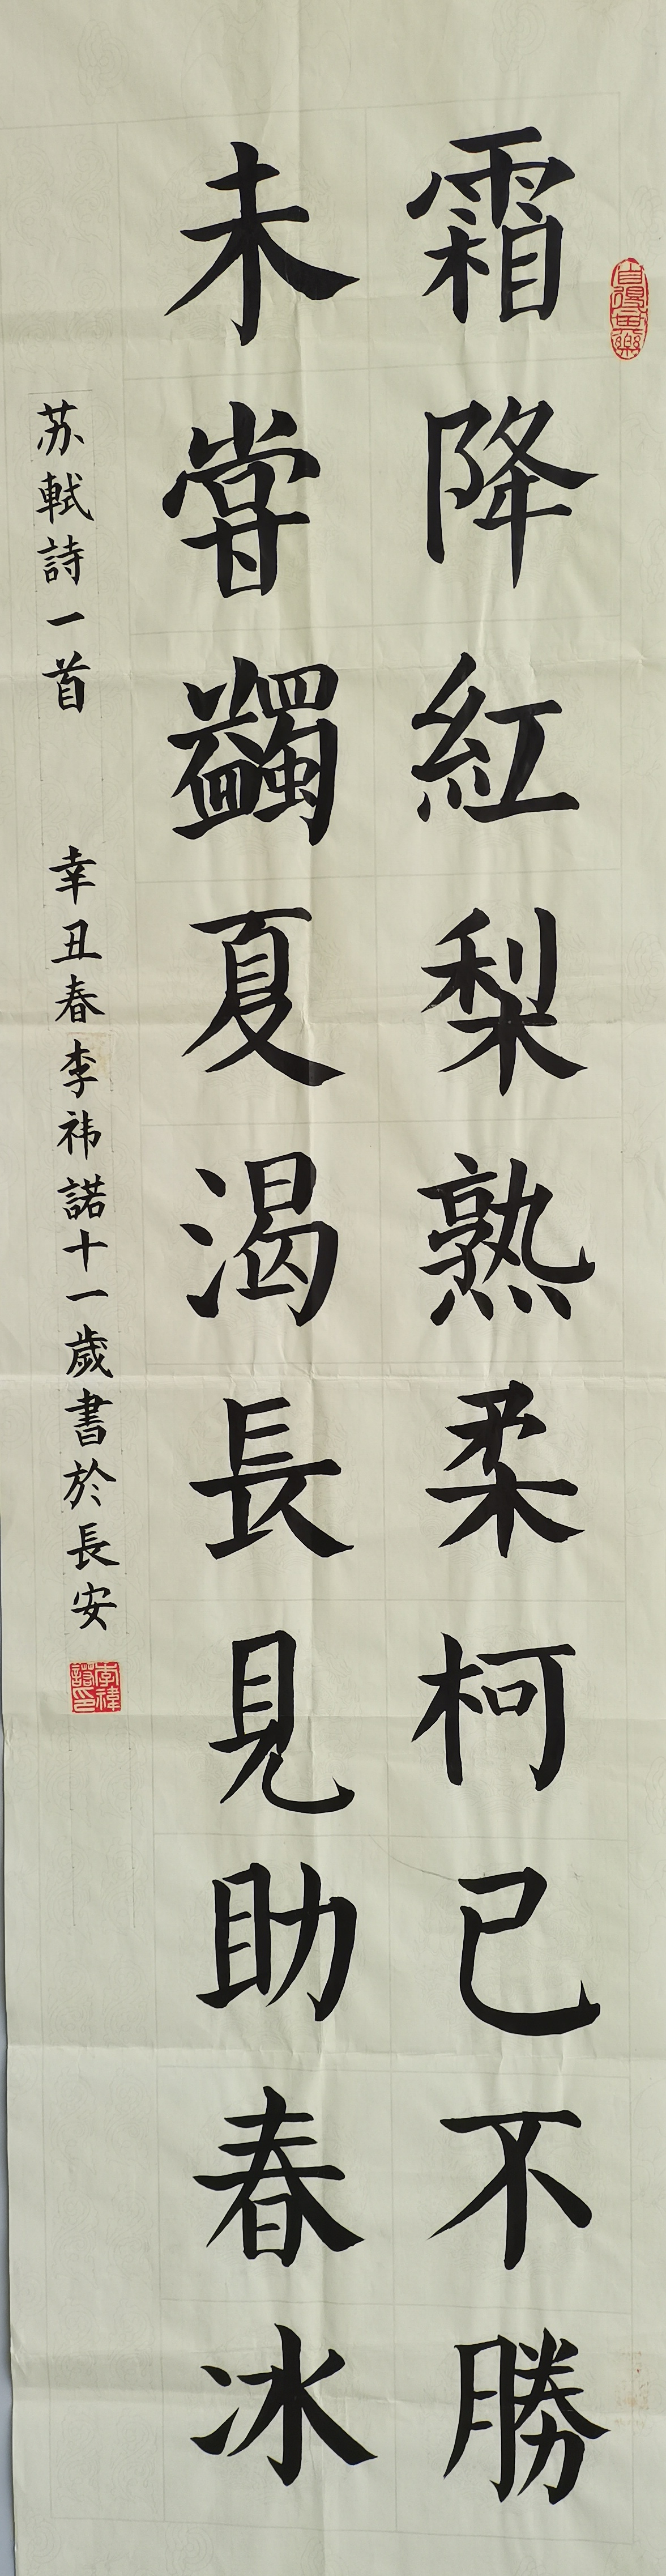 霜降紅梨熟柔柯已不勝
未嘗蠲夏渴長見助春冰
苏軾詩一首 辛丑春李祎諾十一歲書於長安
李禕諾印